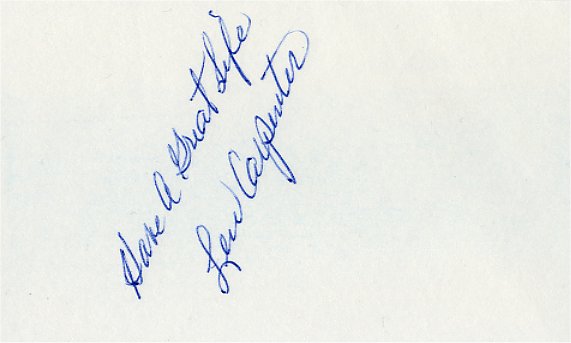 Have A Great Life
Lew Carpenter